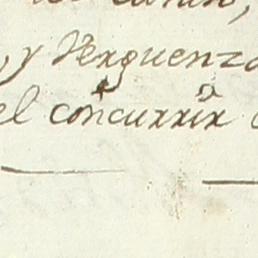 y Verguenza
el concurrir